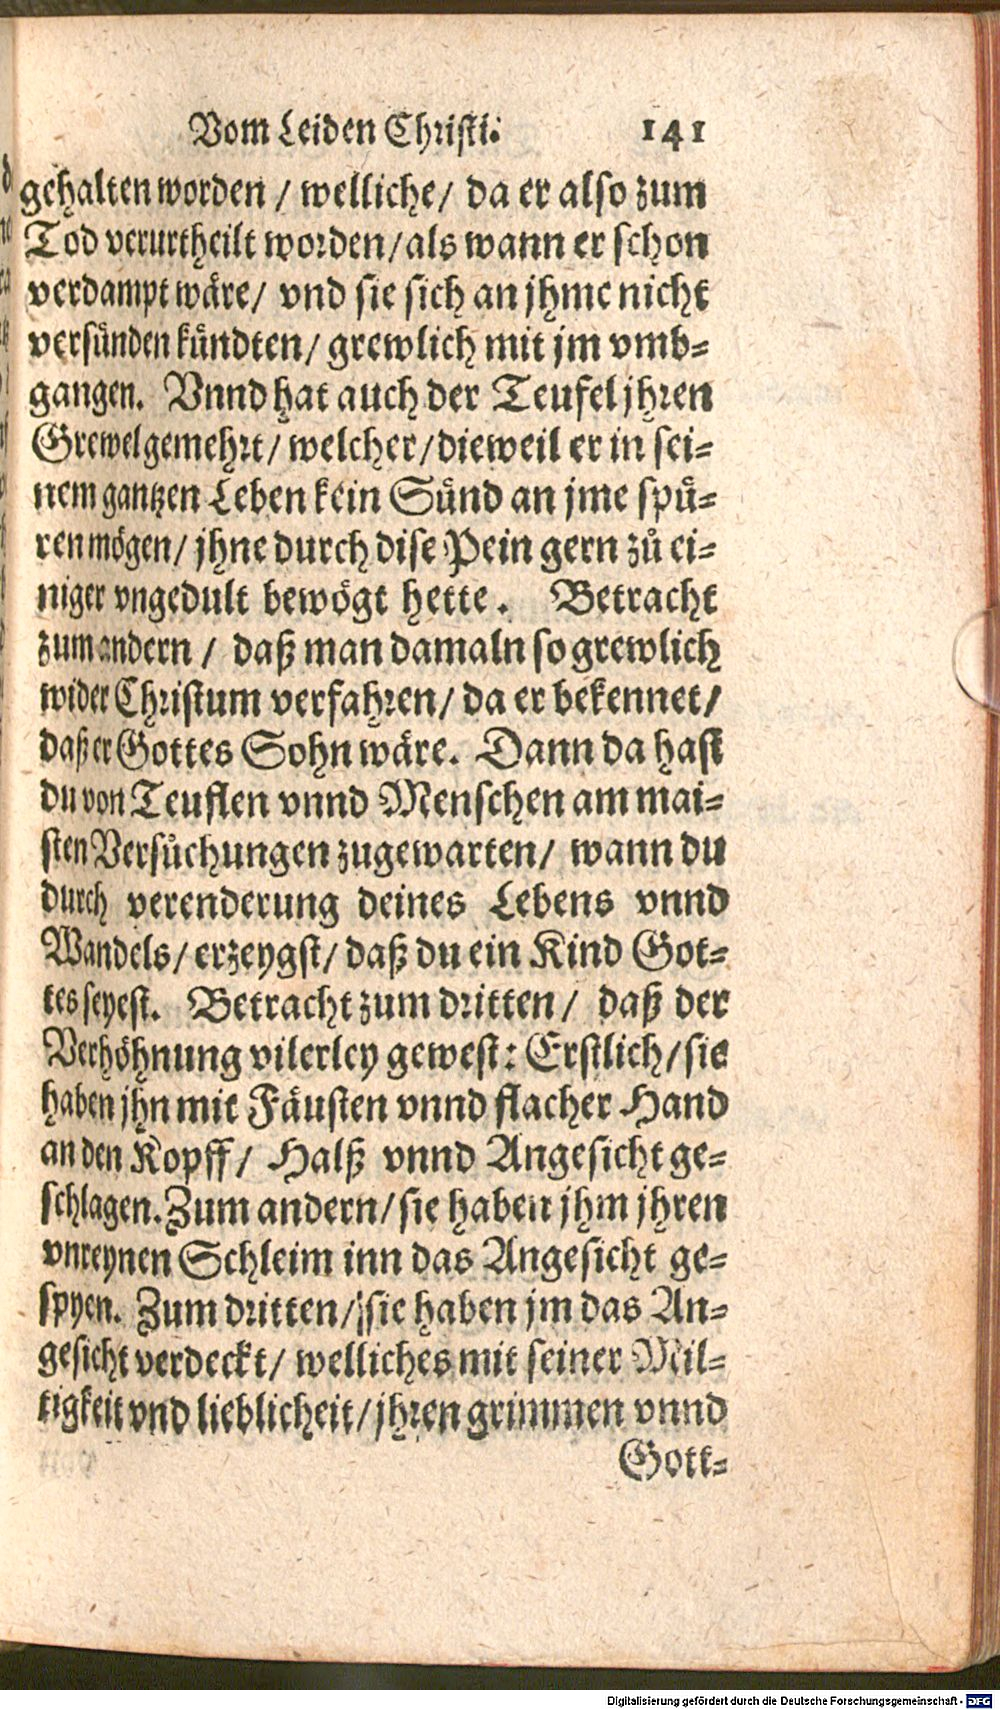 Vom Leiden Christi. 141
gehalten worden / welliche / da er also zum
Tod verurtheilt worden / als wann er schon
verdampt wäre / vnd sie sich an jhme nicht
versünden kündten / grewlich mit jm vmb-
gangen. Vnnd hat auch der Teufel jhren
Grewel gemehrt / welcher / dieweil er in sei-
nem gantzen Leben kein Sünd an jme spü-
ren mögen / jhne durch dise Pein gern zů ei-
niger vngedult bewögt hette. Betracht
zum andern / daß man damaln so grewlich
wider Christum verfahren / da er bekennet /
daß er Gottes Sohn wäre. Dann da hast
du von Teuflen vnnd Menschen am mai-
sten Versůchungen zugewarten / wann du
durch verenderung deines Lebens vnnd
Wandels / erzeygst / daß du ein Kind Got-
tes seyest. Betracht zum dritten / daß der
Verhöhnung vilerley gewest: Erstlich / sie
haben jhn mit Fäusten vnnd flacher Hand
an den Kopff / Halß vnnd Angesicht ge-
schlagen. Zum andern / sie haben jhm jhren
vnreynen Schleim inn das Angesicht ge-
spyen. Zum dritten / sie haben jm das An-
gesicht verdeckt / welliches mit seiner Mil-
tigkeit vnd lieblicheit / jhren grimmen vnnd
Gott-
Digitalisierung gefördert durch die Deutsche Forschungsgemeinschaft - DFG